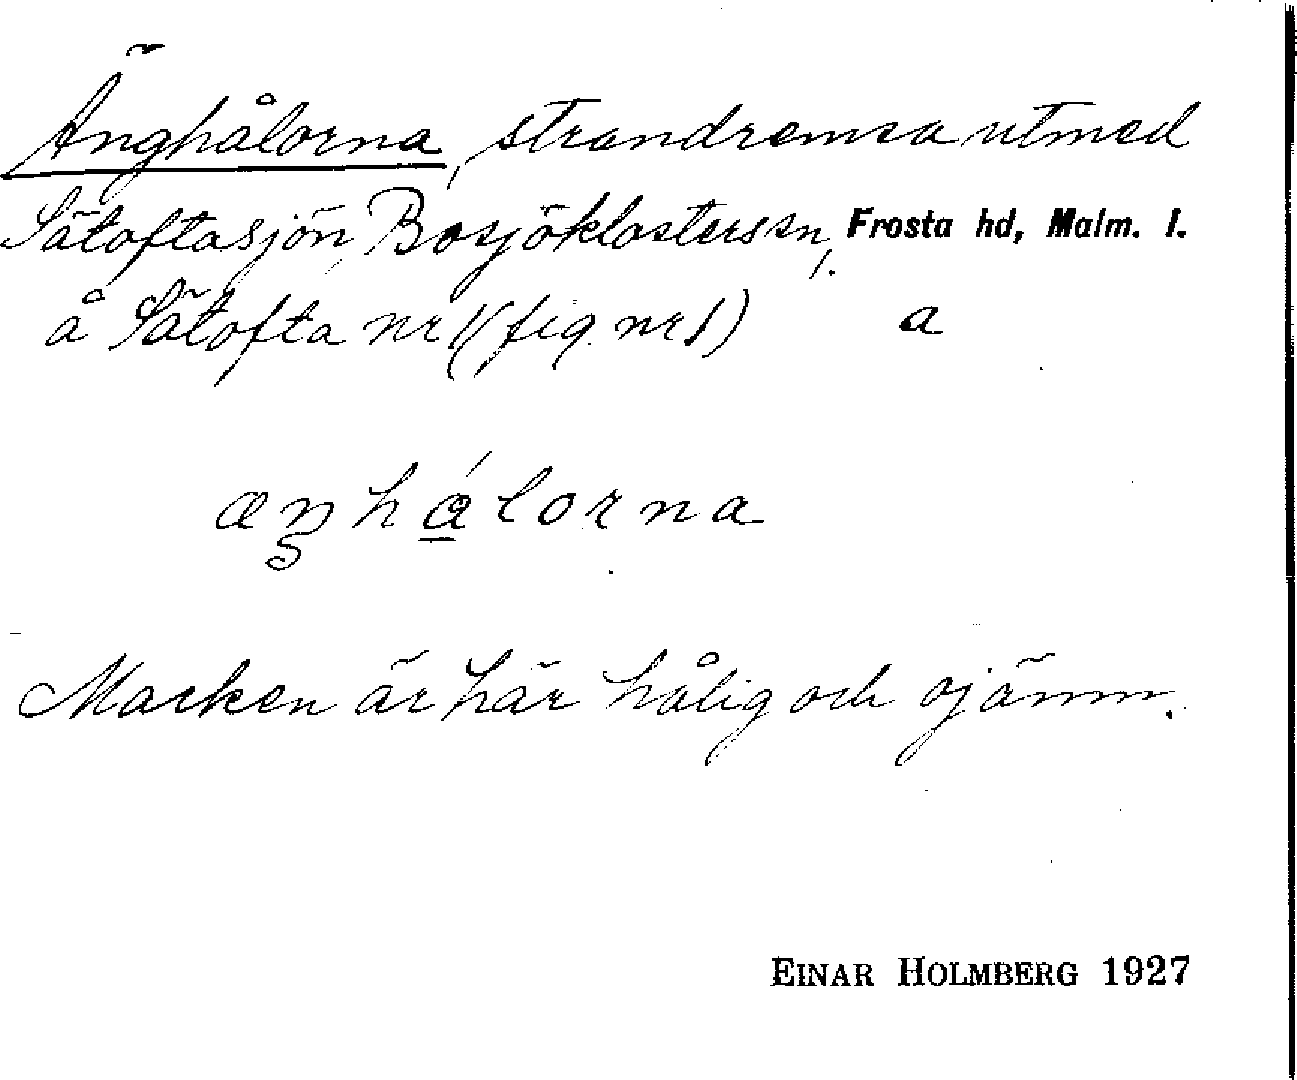 Änghålorna, strandremsa utmed
Sätoftasjön, Bosjöklosters sn, Frosta hd, Malm. l.
å Sätofta nr 1 (fig. nr 1) a
æŋhålorna
Marken är här hålig och ojämn.
EINAR HOLMBERG 1927